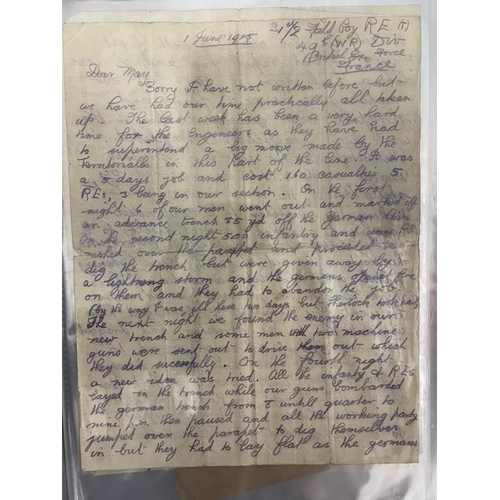 1/2 Field Coy R E (T)
1 June 1915 49th (W R) Div
British Ex. Force
France
Dear May
Sorry I have not written before but
we have had our time practically all taken
up. The last week has been a very hard
time for the Engineers as they have had
to superintend a big move made by the
Territorialls in this part of the line. It was
a 5 days job and cost 160 casualties 5
REs, 3 being in our section. On the first
night 6 of our men went out and marked off
an advance trench 85 yd off the german line
On the second night 300 infantry and some RE
rushed over the parapet and proceeded to
dig the trench but were given away by
a lightning storm and the germans opened fire
on them and they had to abandon the job
(by the way I was ill these two days but Sherlock took part)
The next night we found the enemy in our
new trench and some men with two machine
guns were sent out to drive them out which
they did sucessfully. On the fourth night
a new idea was tried. All the infantry & REs
layed in the trench while our guns bombarded
the german trench from 8 untill quarter to
nine p.m. then paused and all the working party
jumped over the parapet to dig themselves
in but they had to lay flat as the germans